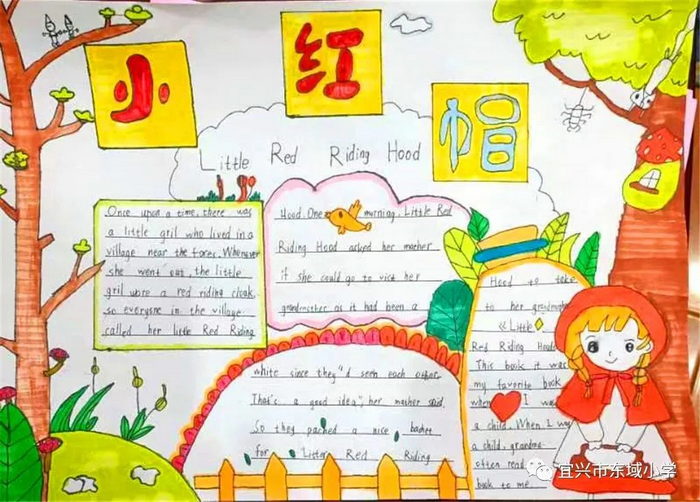 小红帽
Little Red Riding Hood
Once upon a time, there was
a little gril who lived in a
village near the fores. Whenever
she went out, the little
gril wore a red riding cloak,
so everyone in the village
called her little Red Riding
Hood. One morning, Little Red
Riding Hood asked her mother
if she could go to visit her
grandmother as it had been a
white since they"d seen each other.
That's a good idea", her mother said.
So they packed a nice basket
for Litter Red Riding
Hood to take
to her grandmother
《Little
Red Riding Hood
This book it was
my favorite book
when I was
a child. When I was
a child, grandma
often read
book to me
宜兴市东域小学